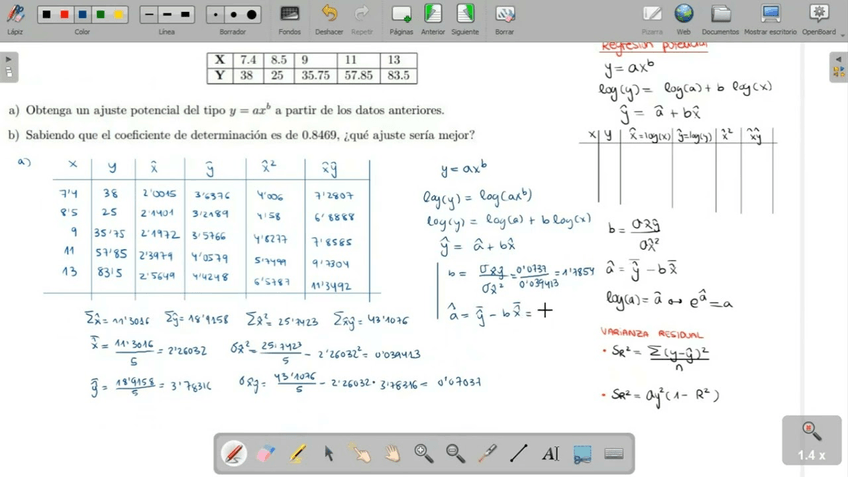 Lápiz Color Línea Borrador Fondos Deshacer Repetir Páginas Anterior Siguiente Borrar Pizarra Web Documentos Mostrar escritorio OpenBoard
X 7.4 8.5 9 11 13
Y 38 25 35.75 57.85 83.5
a) Obtenga un ajuste potencial del tipo y = ax^b a partir de los datos anteriores.
b) Sabiendo que el coeficiente de determinación es de 0.8469, ¿qué ajuste sería mejor?
a)
x y x̂ ŷ x̂² x̂ŷ
7'4 38 2'0015 3'6376 4'006 7'2807
8'5 25 2'1401 3'2189 4'58 6'8888
9 35'75 2'1972 3'5766 4'8277 7'8585
11 57'85 2'3979 4'0579 5'7499 9'7304
13 83'5 2'5649 4'4248 6'5787 11'3492
Σx̂ = 11'3016 Σŷ = 18'9158 Σx̂² = 25'7423 Σx̂ŷ = 43'1076
x̂ = 11'3016/5 = 2'26032 σx̂² = 25'7423/5 - 2'26032² = 0'039413
ŷ = 18'9158/5 = 3'78316 σx̂ŷ = 43'1076/5 - 2'26032 · 3'78316 = 0'07037
y = ax^b
log(y) = log(ax^b)
log(y) = log(a) + b log(x)
ŷ = â + bx̂
b = σx̂ŷ/σx̂² = 0'0737/0'039413 = 1'7854
â = ŷ - b x̂ =
Regresión potencial
y = ax^b
log(y) = log(a) + b log(x)
ŷ = â + bx̂
x y x̂=log(x) ŷ=log(y) x̂² x̂ŷ
b = σx̂ŷ/σx̂²
â = ŷ - b x̂
log(a) = â → e^â = a
VARIANZA RESIDUAL
• SR² = Σ(y-ŷ)²/n
• SR² = σy²(1 - R²)
1.4 x